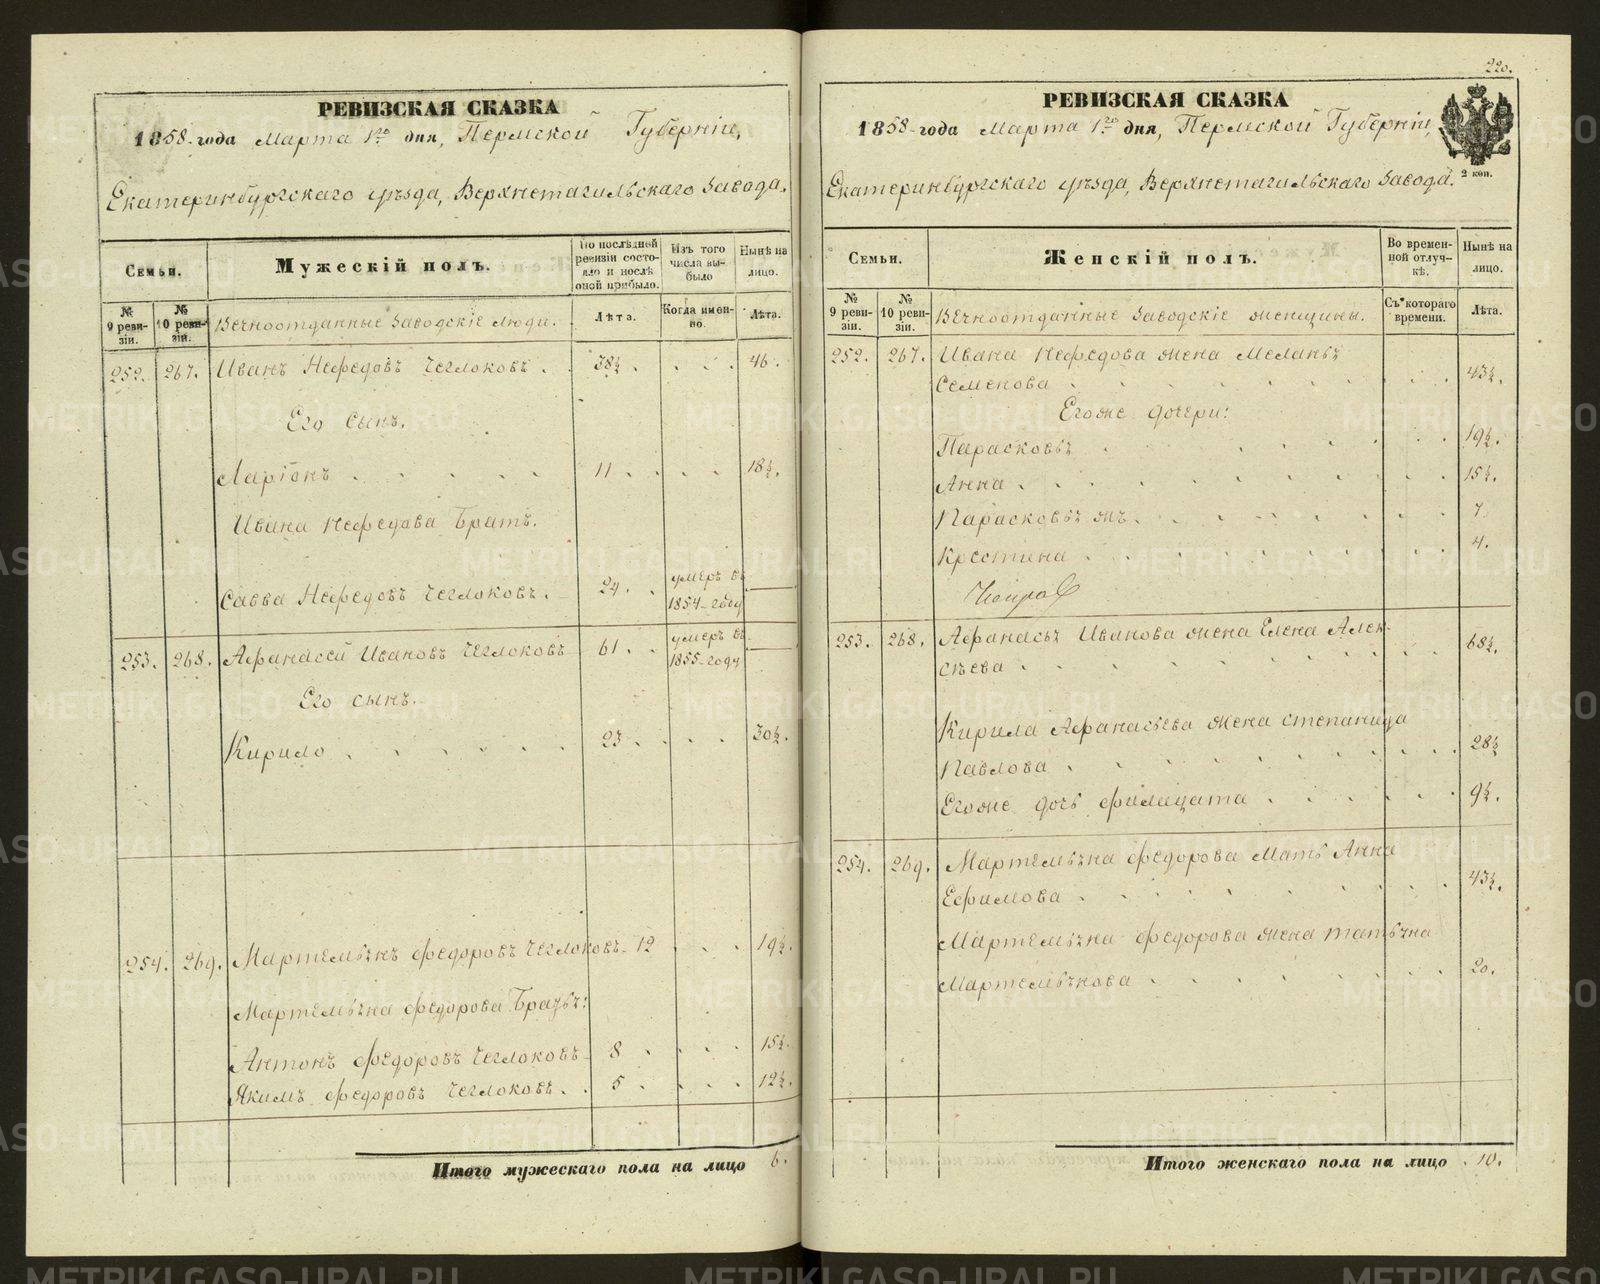 РЕВИЗСКАЯ СКАЗКА
1858 года Марта 1го дня, Пермской Губерніи,
Екатеринбургскаго уѣзда, Верхнетагильскаго завода.
Семьи.
Мужескій полъ.
По послѣдней ревизіи состояло и послѣ оной прибыло.
Изъ того числа выбыло
Нынѣ на лицо.
№ 9 ревизіи.
№ 10 ревизіи.
Вечноотданные заводскіе люди.
Лѣта.
Когда именно.
Лѣта.
252. 267. Иванъ Нефедовъ Чеглоковъ . 38½ . . . 46.
Его сынъ.
Ларіонъ . . . . . 11 . . . . 18½.
Ивана Нефедова Братъ.
Савва Нефедовъ Чеглоковъ. 24 . умеръ въ 1854 году —
253. 268. Афанасей Ивановъ Чеглоковъ 61 . умеръ въ 1855 году —
Его сынъ.
Кирило . . . . . . 23 . . . . 30½.
254. 269. Мартемьянъ Федоровъ Чеглоковъ 12 . . . 19½.
Мартемьяна Федорова Братья:
Антонъ Федоровъ Чеглоковъ 8 . . . . 15½.
Якимъ Федоровъ Чеглоковъ . . 5 . . . . 12½.
Итого мужескаго пола на лицо 6.
220.
РЕВИЗСКАЯ СКАЗКА
1858 года Марта 1го дня, Пермской Губерніи,
Екатеринбургскаго уѣзда, Верхнетагильскаго завода.
2 коп.
Семьи.
Женскій полъ.
Во временной отлучкѣ.
Нынѣ на лицо.
№ 9 ревизіи.
№ 10 ревизіи.
Вечноотданные заводскіе женщины.
Съ котораго времени.
Лѣта.
252. 267. Ивана Нефедова жена Меланья
Семенова . . . . . . . . 43½.
Егоже дочери:
Парасковья . . . . . . 19½.
Анна . . . . . . . . 15½.
Парасковья ж. . . . . . . 7.
Крестина . . . . . . . 4.
253. 268. Афанасья Иванова жена Елена Алек-
сѣева . . . . . . . . 68½.
Кирила Афанасьева жена Степанида
Павлова . . . . . . . 28½
Егоже дочь Филицата . . . . . 9½.
254. 269. Мартемьяна Федорова Мать Анна
Ефимова . . . . . . . 43½.
Мартемьяна Федорова жена Татьяна
Мартемьянова . . . . . . 20.
Итого женскаго пола на лицо . 10.
METRIKI.GASO-URAL.RU